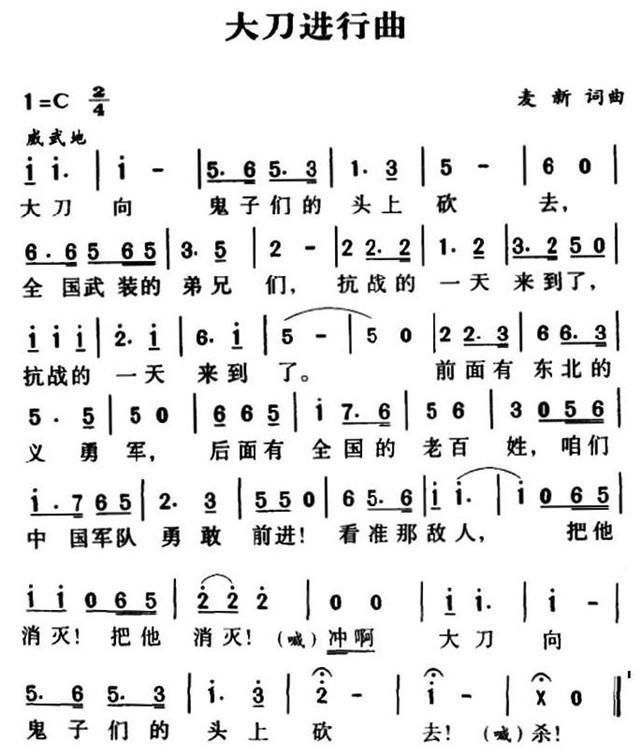 大刀进行曲
1=C 2/4 麦新 词曲
威武地
i i· | i - | 5· 6 5· 3 | 1· 3 | 5 - | 6 0 |
大刀 向 鬼子们的 头上 砍 去，
6· 6 5 6 5 | 3· 5 | 2 - | 2 2· 2 | 1· 2 | 3· 2 5 0 |
全国武装的弟兄们，抗战的一天来到了，
i i i | 2· i | 6· i | 5 - | 5 0 | 2 2· 3 | 6 6· 3 |
抗战的一天来到了。前面有东北的
5· 5 | 5 0 | 6 6 5 | i 7· 6 | 5 6 | 3 0 5 6 |
义勇军，后面有全国的老百姓，咱们
i· 7 6 5 | 2· 3 | 5 5 0 | 6 5· 6 | i i· | i 0 6 5 |
中国军队勇敢前进！看准那敌人，把他
i i 0 6 5 | 2 2 2 | 0 0 | i i· | i - |
消灭！把他消灭！（喊）冲啊 大刀 向
5· 6 5· 3 | i· 3 | 2 - | i - | X 0 ‖
鬼子们的头上砍去！（喊）杀！